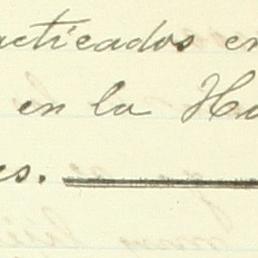 acticados en
en la Ha
es.